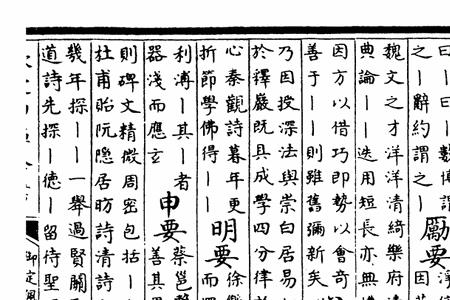 曰丨曰丨數博謂
之丨辭約謂之丨
勵要
因
魏文之才洋洋清綺樂府
典論丨丨迭用短長亦無
因方以借巧即勢以會奇
善于丨丨則雖舊彌新矣
乃因授深法與崇白居易
於釋巖既具成學四分律
心秦觀詩暮年更
折節學佛得丨丨
明要
徐
而
利溥丨其丨者
器淺而應玄
申要
蔡邕
善其
則碑文精微周密包括丨
杜甫貽阮隱居昉詩清詩
幾年探丨丨一舉過賢關
道詩先探丨德丨留待聖
御定